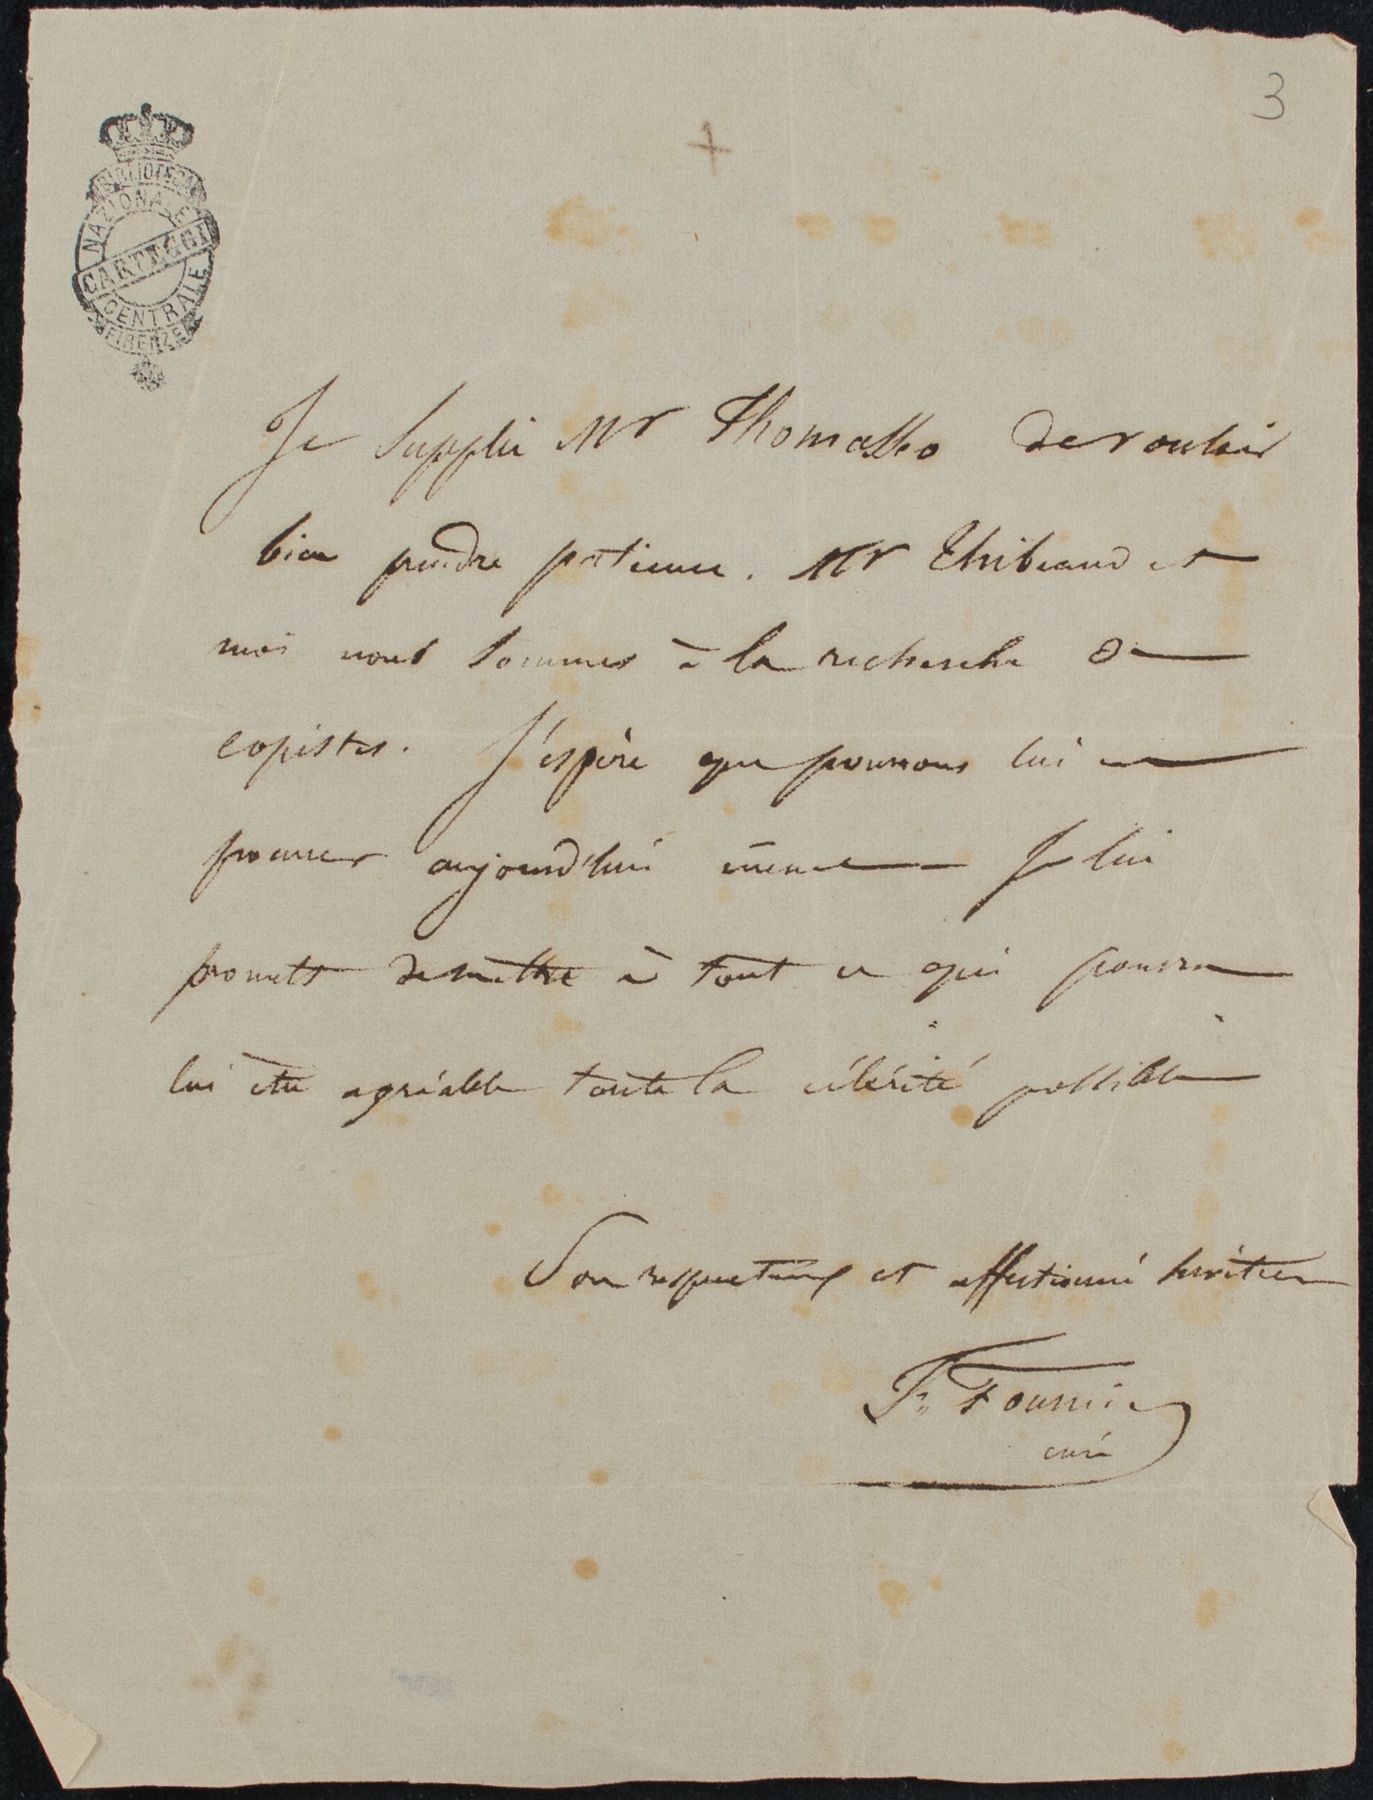 3
+
BIBLIOTECA
NAZIONALE
CARTEGGI
CENTRALE
FIRENZE
Je supplie Mr Thomasseo de vouloir
bien prendre patience. Mr Thibeaud et
moi nous sommes à la recherche de
copistes. J'espère que pourrons lui en
procurer aujourd'hui même Je lui
promets de mettre à tout ce qui pourra
lui être agréable toute la célérité possible
Son respectueux et affectionné serviteur
F. Fournier
curé